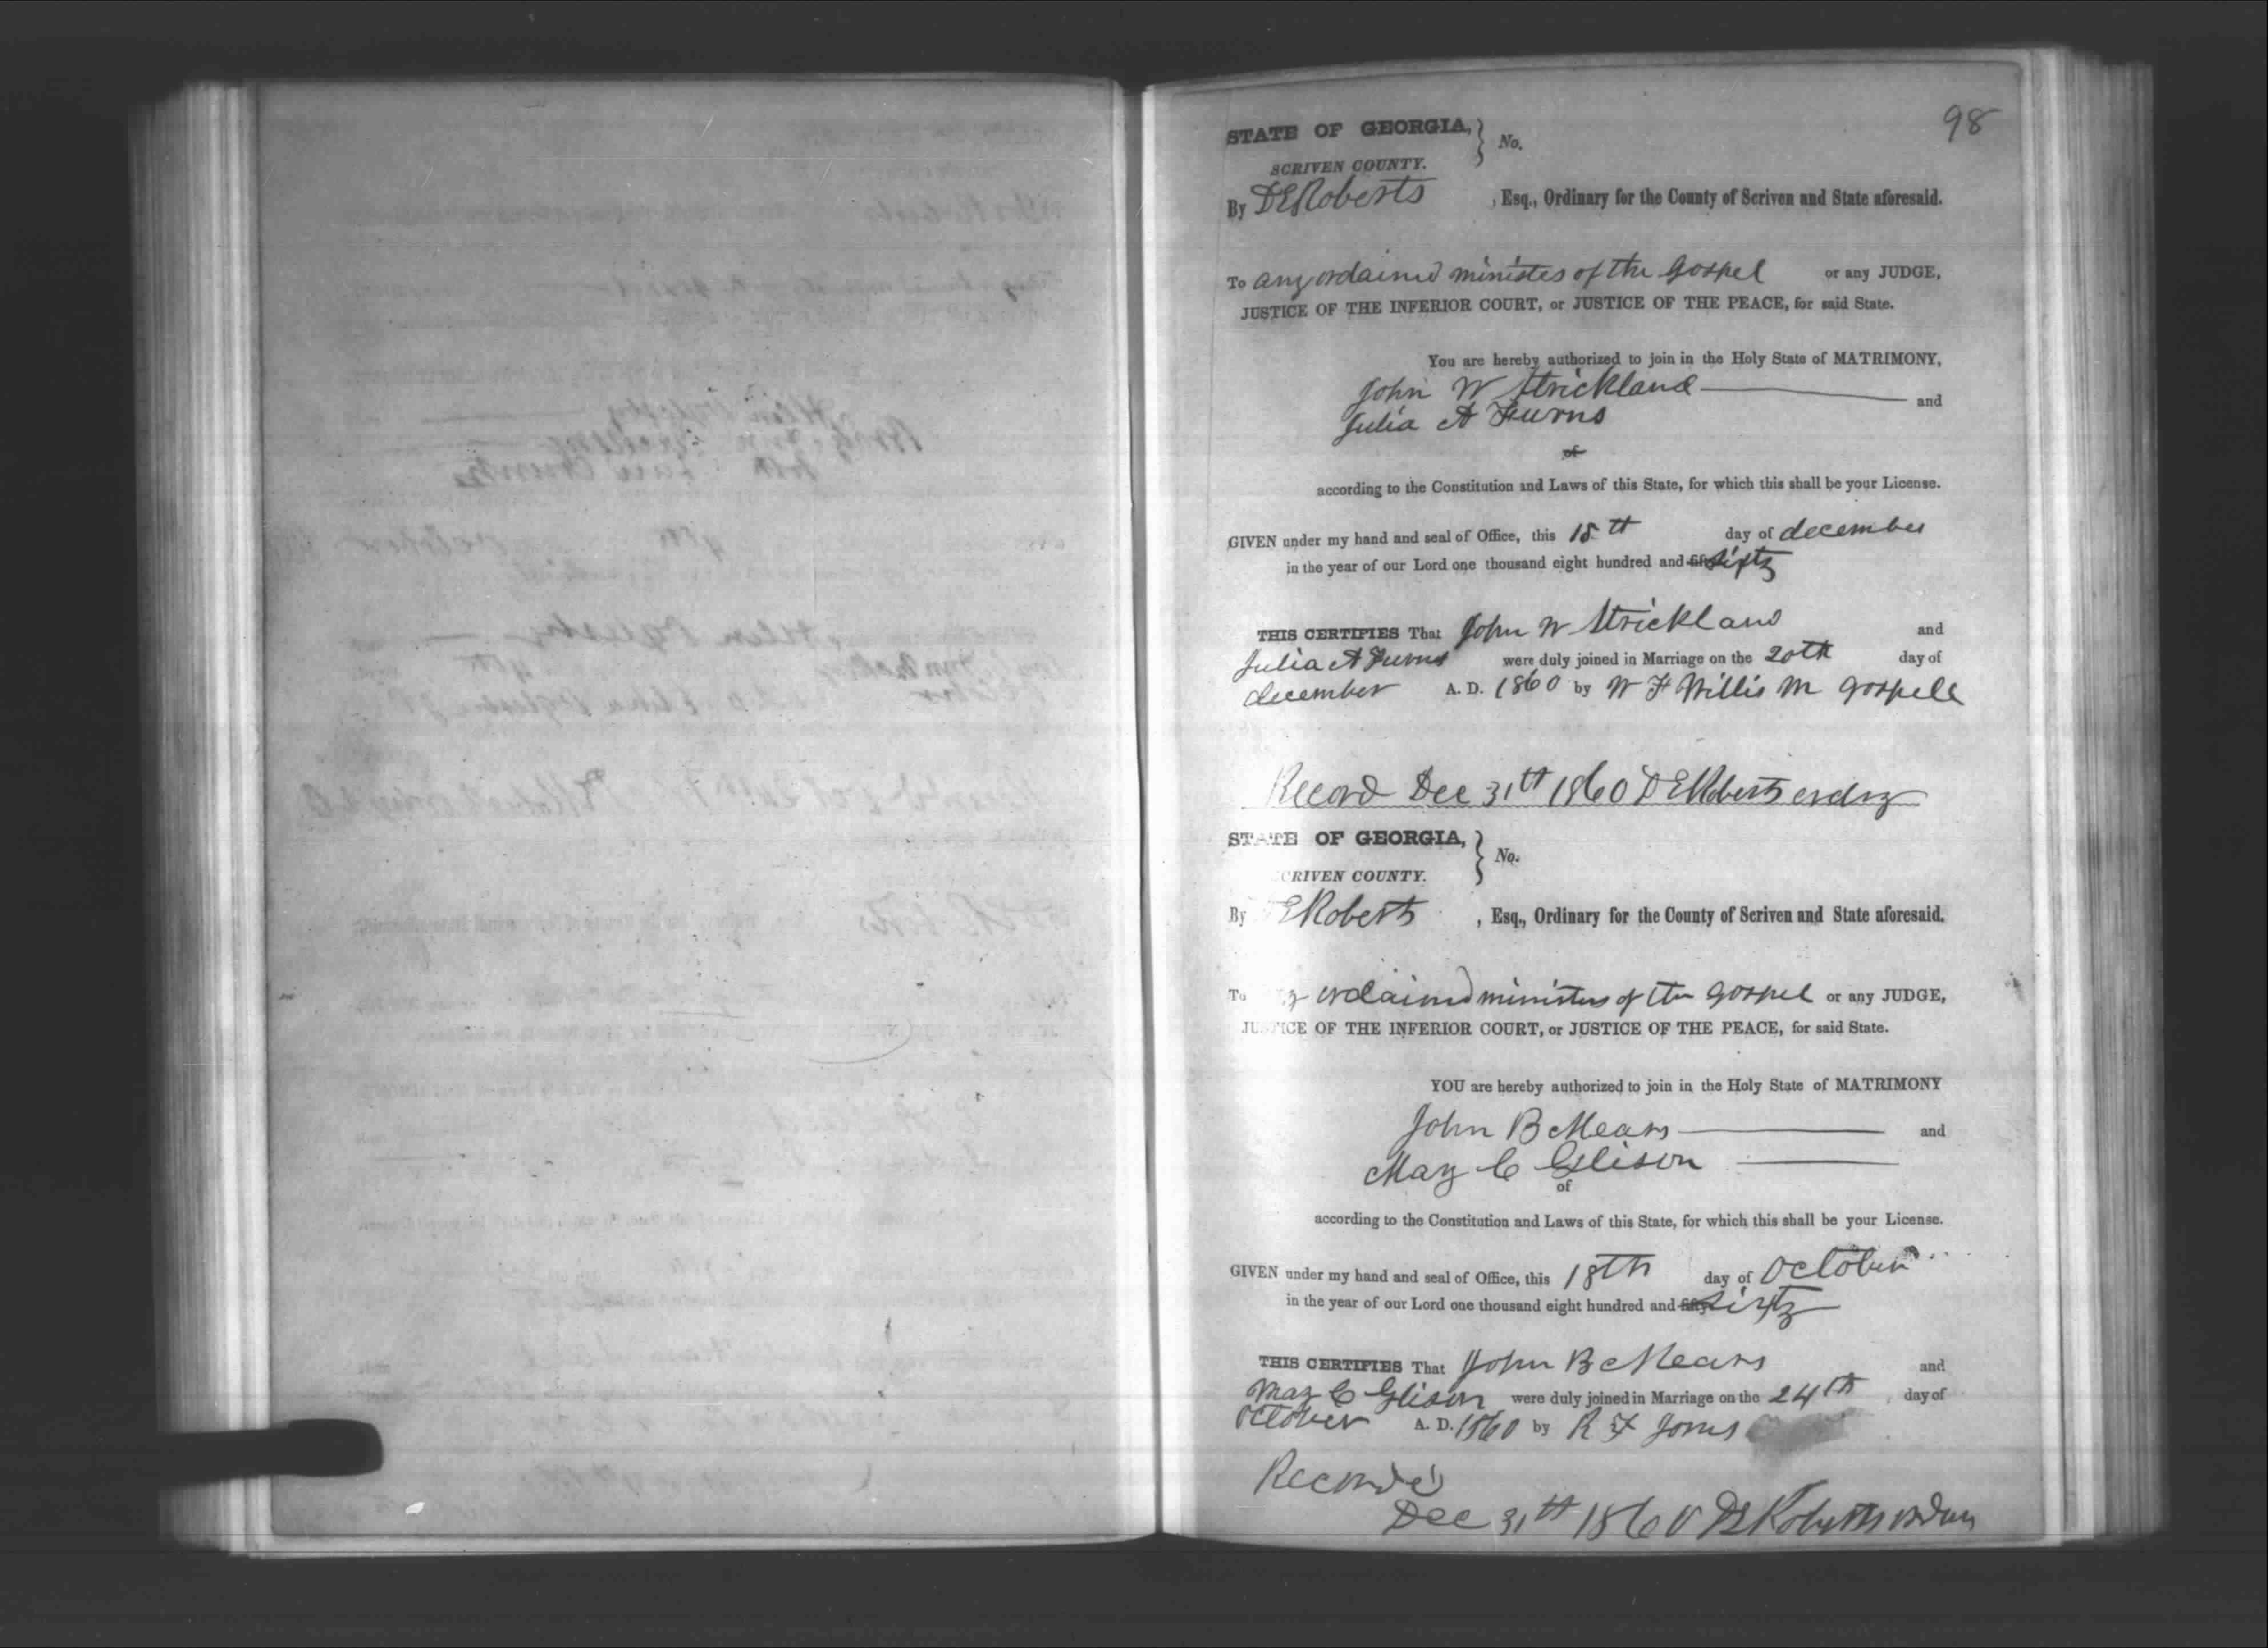 98
STATE OF GEORGIA, } No.
SCRIVEN COUNTY.
By D E Roberts , Esq., Ordinary for the County of Scriven and State aforesaid.
To any ordained ministes of the Gospel or any JUDGE,
JUSTICE OF THE INFERIOR COURT, or JUSTICE OF THE PEACE, for said State.
You are hereby authorized to join in the Holy State of MATRIMONY,
John W Strickland and
Julia A Furns
of
according to the Constitution and Laws of this State, for which this shall be your License.
GIVEN under my hand and seal of Office, this 15th day of december
in the year of our Lord one thousand eight hundred and fifty sixty
THIS CERTIFIES That John W Strickland and
Julia A Furns were duly joined in Marriage on the 20th day of
december A. D. 1860 by W F Willis M gospell
Record Dec 31th 1860 D E Roberts ordny
STATE OF GEORGIA, } No.
CRIVEN COUNTY.
By E Roberts , Esq., Ordinary for the County of Scriven and State aforesaid.
To y ordained ministers of the Gospel or any JUDGE,
JUSTICE OF THE INFERIOR COURT, or JUSTICE OF THE PEACE, for said State.
YOU are hereby authorized to join in the Holy State of MATRIMONY
John B Mears and
Mary C Glison
of
according to the Constitution and Laws of this State, for which this shall be your License.
GIVEN under my hand and seal of Office, this 18th day of October
in the year of our Lord one thousand eight hundred and fifty sixty
THIS CERTIFIES That John B Mears and
Mary C Glison were duly joined in Marriage on the 24th day of
October A. D. 1860 by R F Jones
Recorded
Dec 31th 1860 D E Roberts